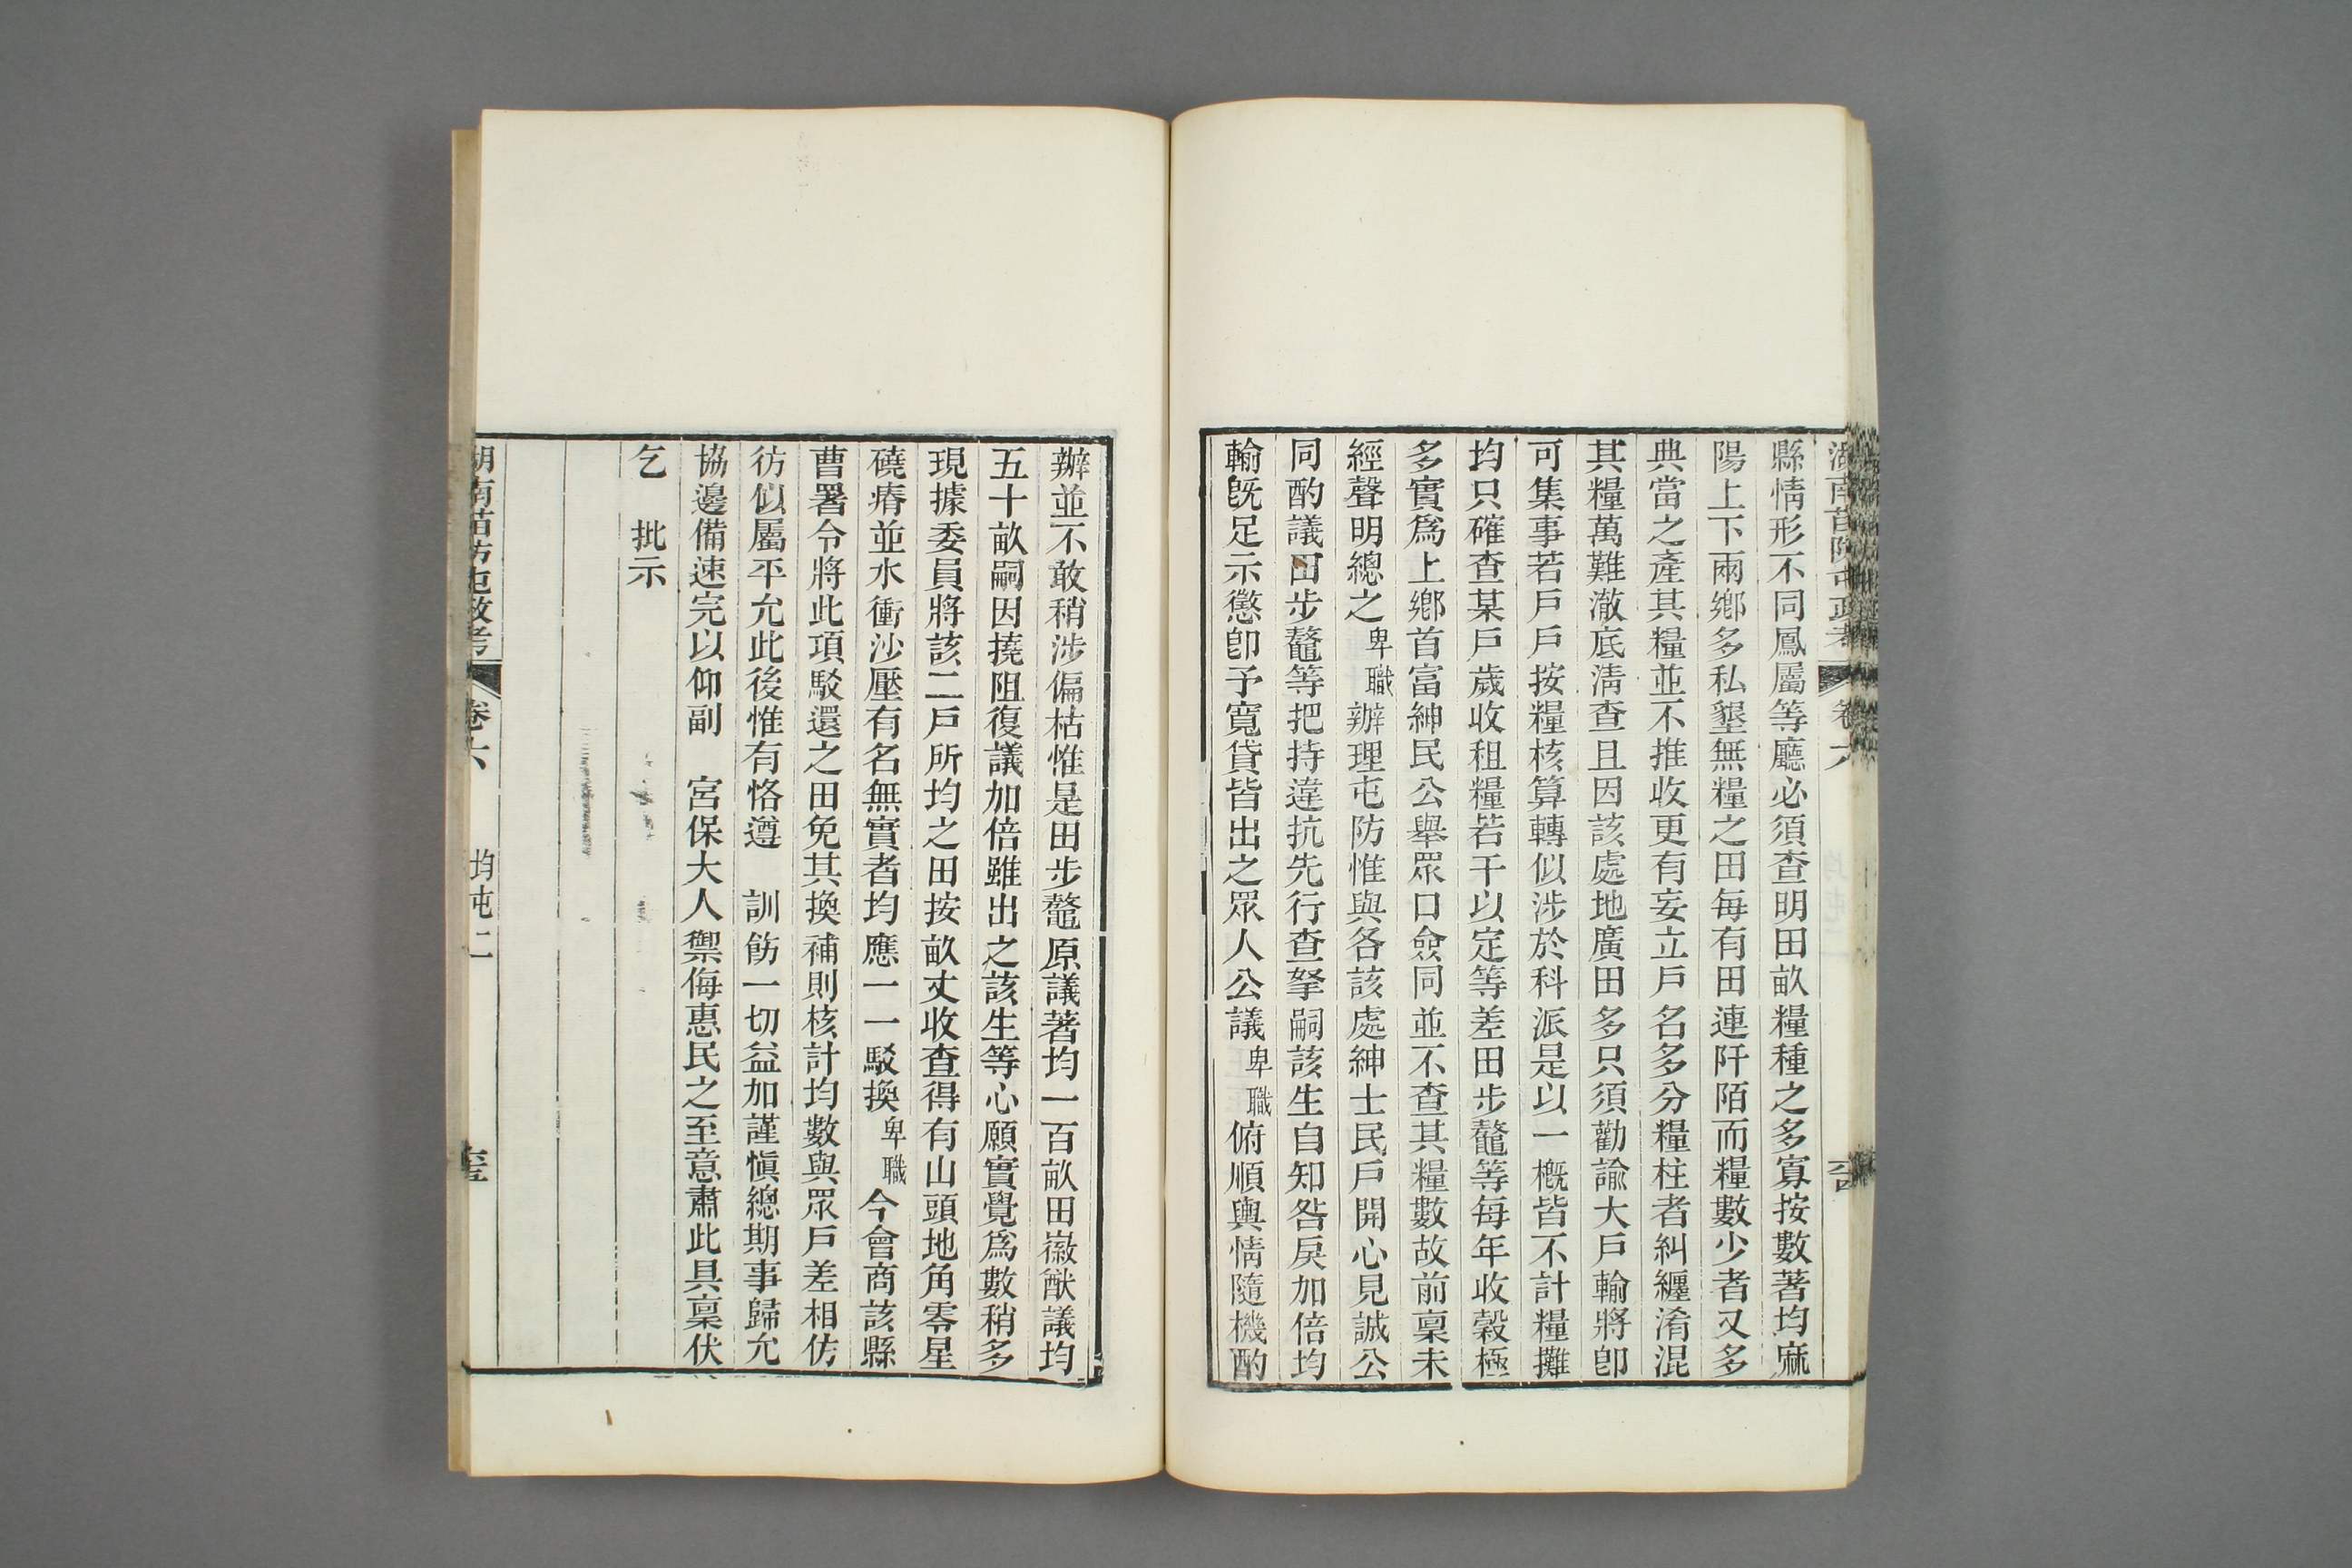 縣情形不同鳳屬等廳必須查明田畝糧種之多寡按數著均麻
陽上下兩鄉多私墾無糧之田每有田連阡陌而糧數少者又多
典當之產其糧並不推收更有妄立戶名多分糧柱者糾纏淆混
其糧萬難澈底清查且因該處地廣田多只須勸諭大戶輸將卽
可集事若戶戶按糧核算轉似涉於科派是以一概皆不計糧攤
均只確查某戶歲收租糧若干以定等差田步鼇等每年收穀極
多實爲上鄉首富紳民公舉眾口僉同並不查其糧數故前稟未
經聲明總之卑職辦理屯防惟與各該處紳士民戶開心見誠公
同酌議田步鼇等把持違抗先行查拏嗣該生自知咎戾加倍均
輸旣足示懲卽予寬貸皆出之眾人公議卑職俯順輿情隨機酌
辦並不敢稍涉偏枯惟是田步鼇原議著均一百畝田徽猷議均
五十畝嗣因撓阻復議加倍雖出之該生等心願實覺爲數稍多
現據委員將該二戶所均之田按畝丈收查得有山頭地角零星
磽瘠並水衝沙壓有名無實者均應一一駁換卑職今會商該縣
曹署令將此項駁還之田免其換補則核計均數與眾戶差相仿
彷似屬平允此後惟有恪遵　訓飭一切益加謹愼總期事歸允
協邊備速完以仰副　宮保大人禦侮惠民之至意肅此具稟伏
乞　批示
湖南苗防屯政考　卷六　均屯二